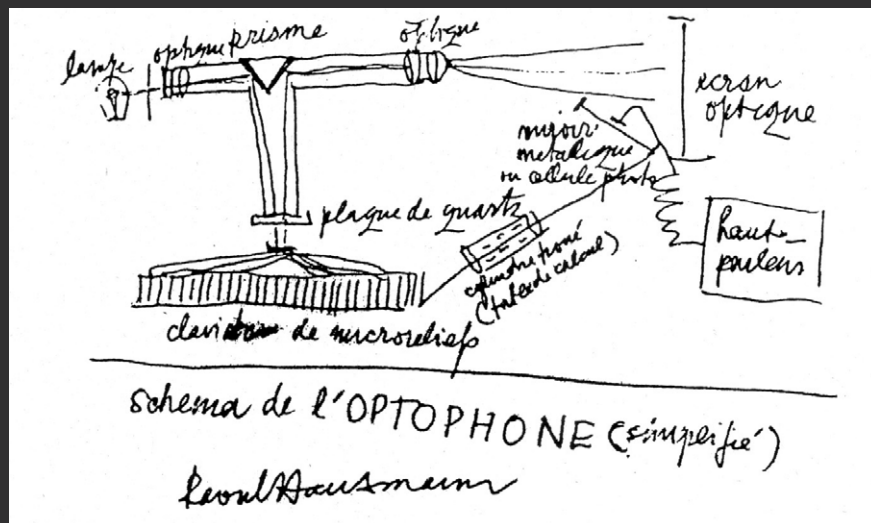 lampe
optique
prisme
optique
écran
optique
miroir
métallique
ou cellule photo
plaque de quartz
cylindre troué
haut-
parleur
de microreliefs
schema de l'OPTOPHONE (simplifié)
Raoul Hausmann